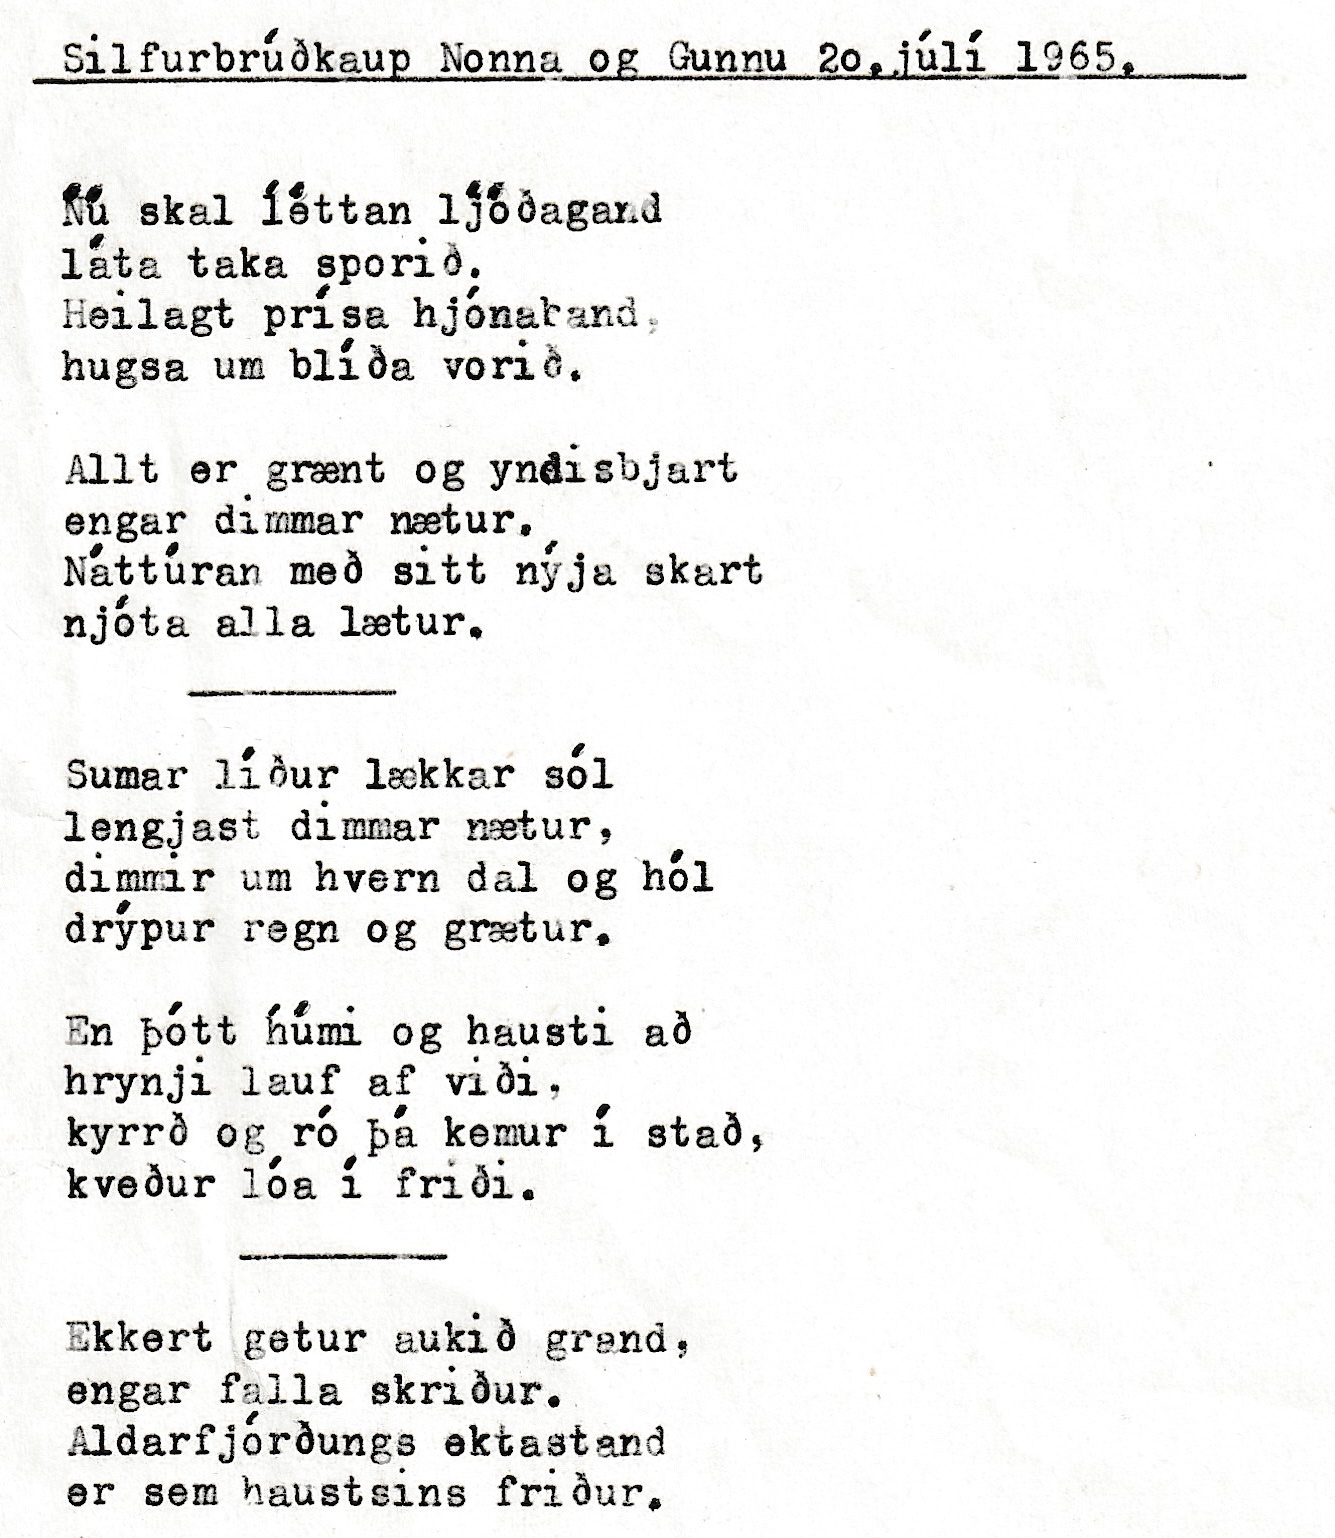 Silfurbrúðkaup Nonna og Gunnu 2o.júlí 1965.
Nú skal íéttan ljóðagand
láta taka sporið.
Heilagt prísa hjónaband,
hugsa um blíða vorið.
Allt er grænt og yndisbjart
engar dimmar nætur.
Náttúran með sitt nýja skart
njóta alla lætur.
Sumar líður lækkar sól
lengjast dimmar nætur,
dimmir um hvern dal og hól
drýpur regn og grætur.
En þótt húmi og hausti að
hrynji lauf af viði,
kyrrð og ró þá kemur í stað,
kveður lóa í friði.
Ekkert getur aukið grand,
engar falla skriður.
Aldarfjórðungs ektastand
er sem haustsins friður.